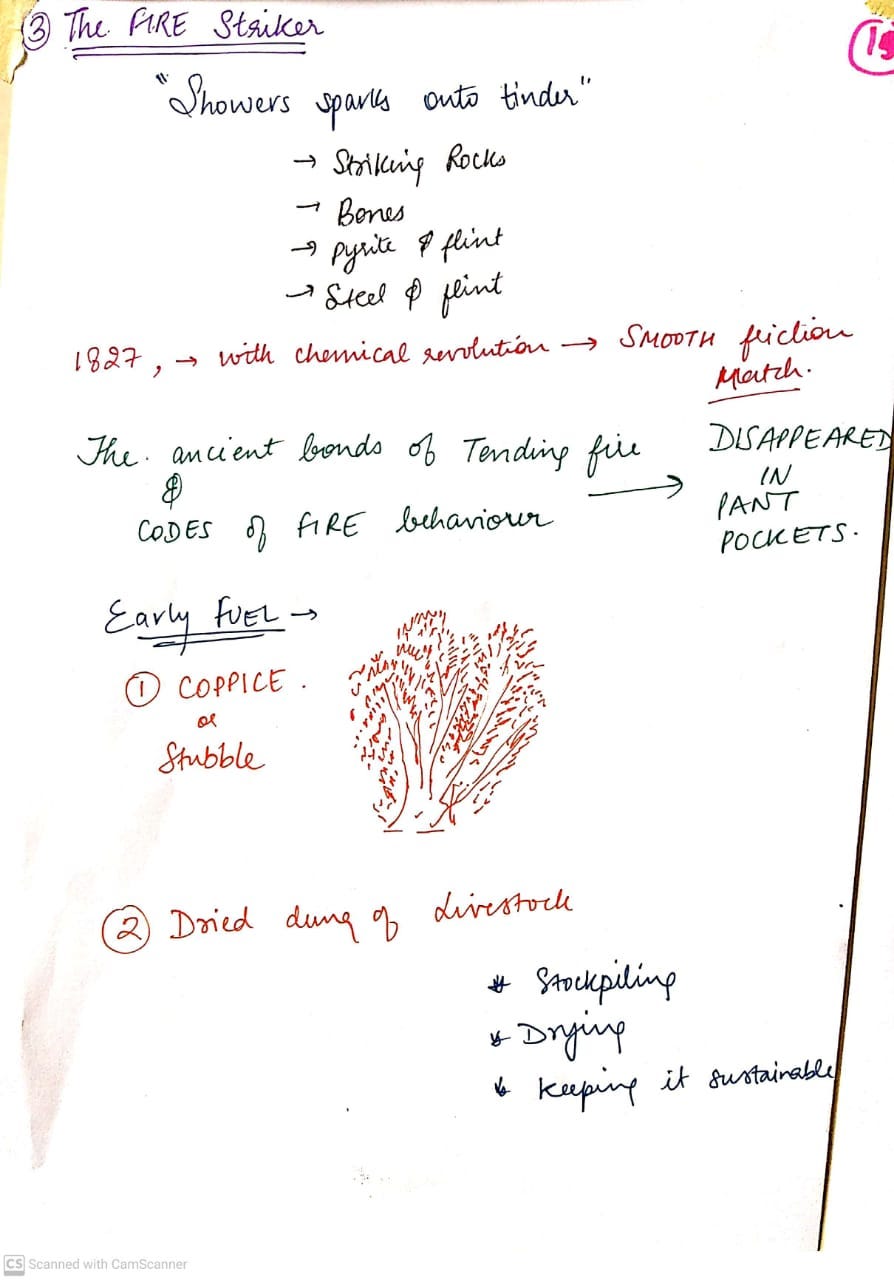 ③ The FIRE Striker
"Showers sparks onto tinder"
→ Striking Rocks
→ Bones
→ Pyrite & flint
→ Steel & flint
1827, → with chemical revolution → SMOOTH friction
Match.
The. ancient bonds of Tending fire
&
CODES of FIRE behaviourr
→ DISAPPEARED
IN
PANT
POCKETS.
Early FUEL →
① COPPICE.
or
Stubble
② Dried dung of Livestock
* Stockpiling
* Drying
* Keeping it sustainable
CS Scanned with CamScanner